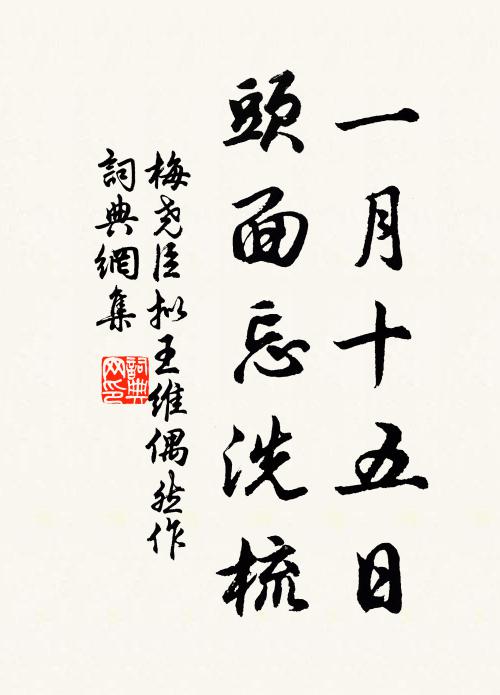 一月十五日
頭面忘洗梳
梅尧臣拟王維偶然作
詞典網集
詞典网印